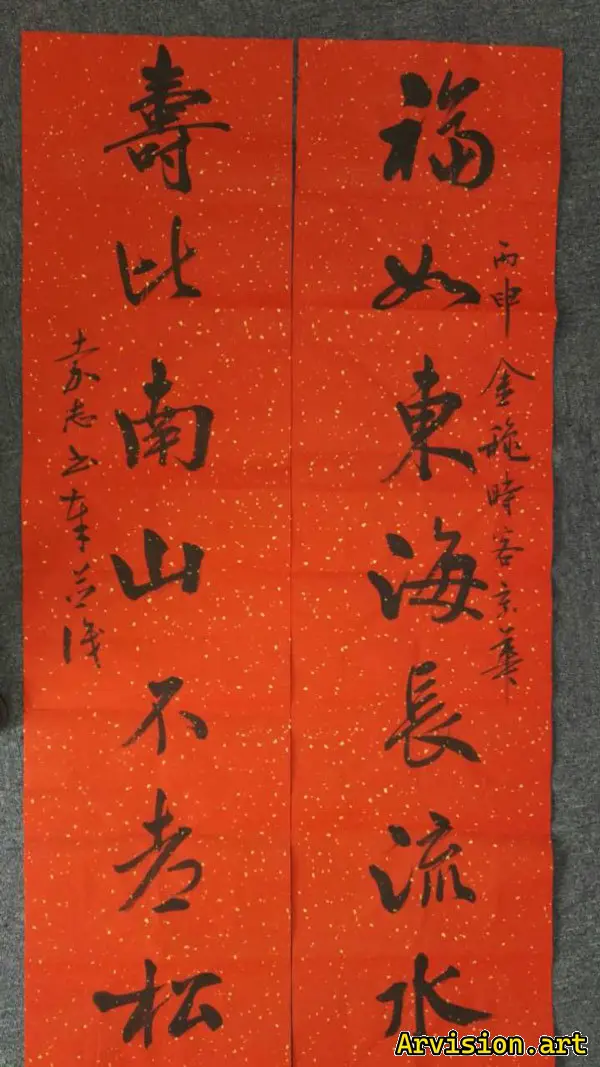 福如東海長流水
丙申 金 時客京華
壽比南山不老松
袁志 書
Arvision.art